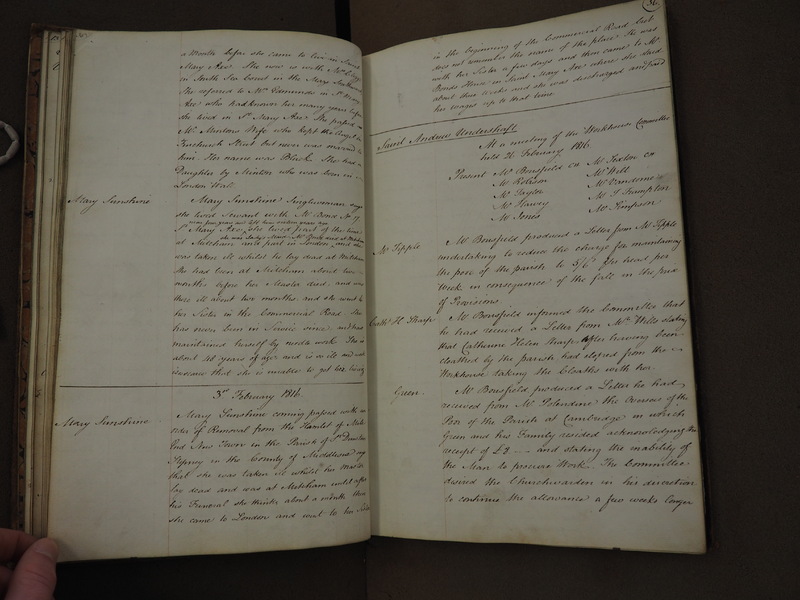 a Month before she came to live in Saint
Mary Axe. She now is with Mrs
in South Sea Court in the Mint Southwark
She referred to Mrs Simmonds in St Mary
Axe who had known her many years before
she lived in St Mary Axe. She passed as
Mr Mintons Wife who kept the Angel in
Fenchurch Street but never was married to
him. Her name was Black. She had a
Daughter by Minton who was born in
London Wall.
Mary Sunshine
Mary Sunshine Singlewoman says
she lived Servant with Mr Bond No 17
St Mary Axe, she lived part of the time
at Mitcham and part in London and she
was taken ill whilst he lay dead at Mitcham
She had been at Mitcham about two
months before her Master died, and was
there ill about two months and she went to
her Sister in the Commercial Road. She
has never been in Service since and has
maintained herself by needle work She is
about 48 years of age and is so ill and
that she is unable to get her living
3rd February 1816
Mary Sunshine
Mary Sunshine coming passed with an
order of Removal from the Hamlet of Mile
End New Town in the Parish of St Dunstan
Stepney in the County of Middlesex says
that she was taken ill whilst her Master
lay dead and was at Mitcham until after
his Funeral she thinks about a month then
she came to London and went to her Sister
36
in the beginning of the Commercial Road but
does not remember the name of the place. She was
with her Sister a few days and then came to Mr
Bonds House in Saint Mary Axe where she staid
about three weeks and she was discharged and paid
her wages up to that time.
Saint Andrew Undershaft
At a meeting of the Workhouse Committee
held 26 February 1816
Present Mr Bousfield CW Mr Sexton CW
Mr Robson Mr Well
Mr Taylor Mr Vandome
Mr Harvey Mr J Frampton
Mr Jones Mr Simpson
Mr Tipple
Mr Bousfield produced a Letter from Mr Tipple
undertaking to reduce the charge for maintaining
the poor of the parish to 5/6 per head per
Week in consequence of the fall in the price
of Provisions.
Cathe H. Sharpe
Mr Bousfield informed the Committee that
he had received a Letter from Mr Wells stating
that Catherine Helen Sharpe after having been
cloathed by the parish had eloped from the
Workhouse taking the Cloaths with her.
Green
Mr Bousfield produced a Letter he had
received from Mr the Overseer of the
Poor of the Parish at Cambridge in which
Green and his Family resided acknowledging the
receipt of £2 and stating the inability of
the Man to procure Work. The Committee
desired the Churchwarden in his discretion
to continue the allowance a few weeks longer